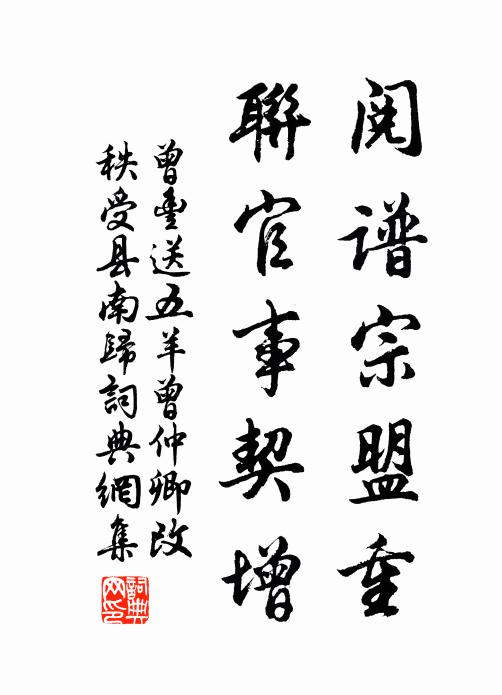 阅谱宗盟重
聯官事契增
曾豊送五羊曾仲卿改
秩受县南歸詞典網集
詞典網印